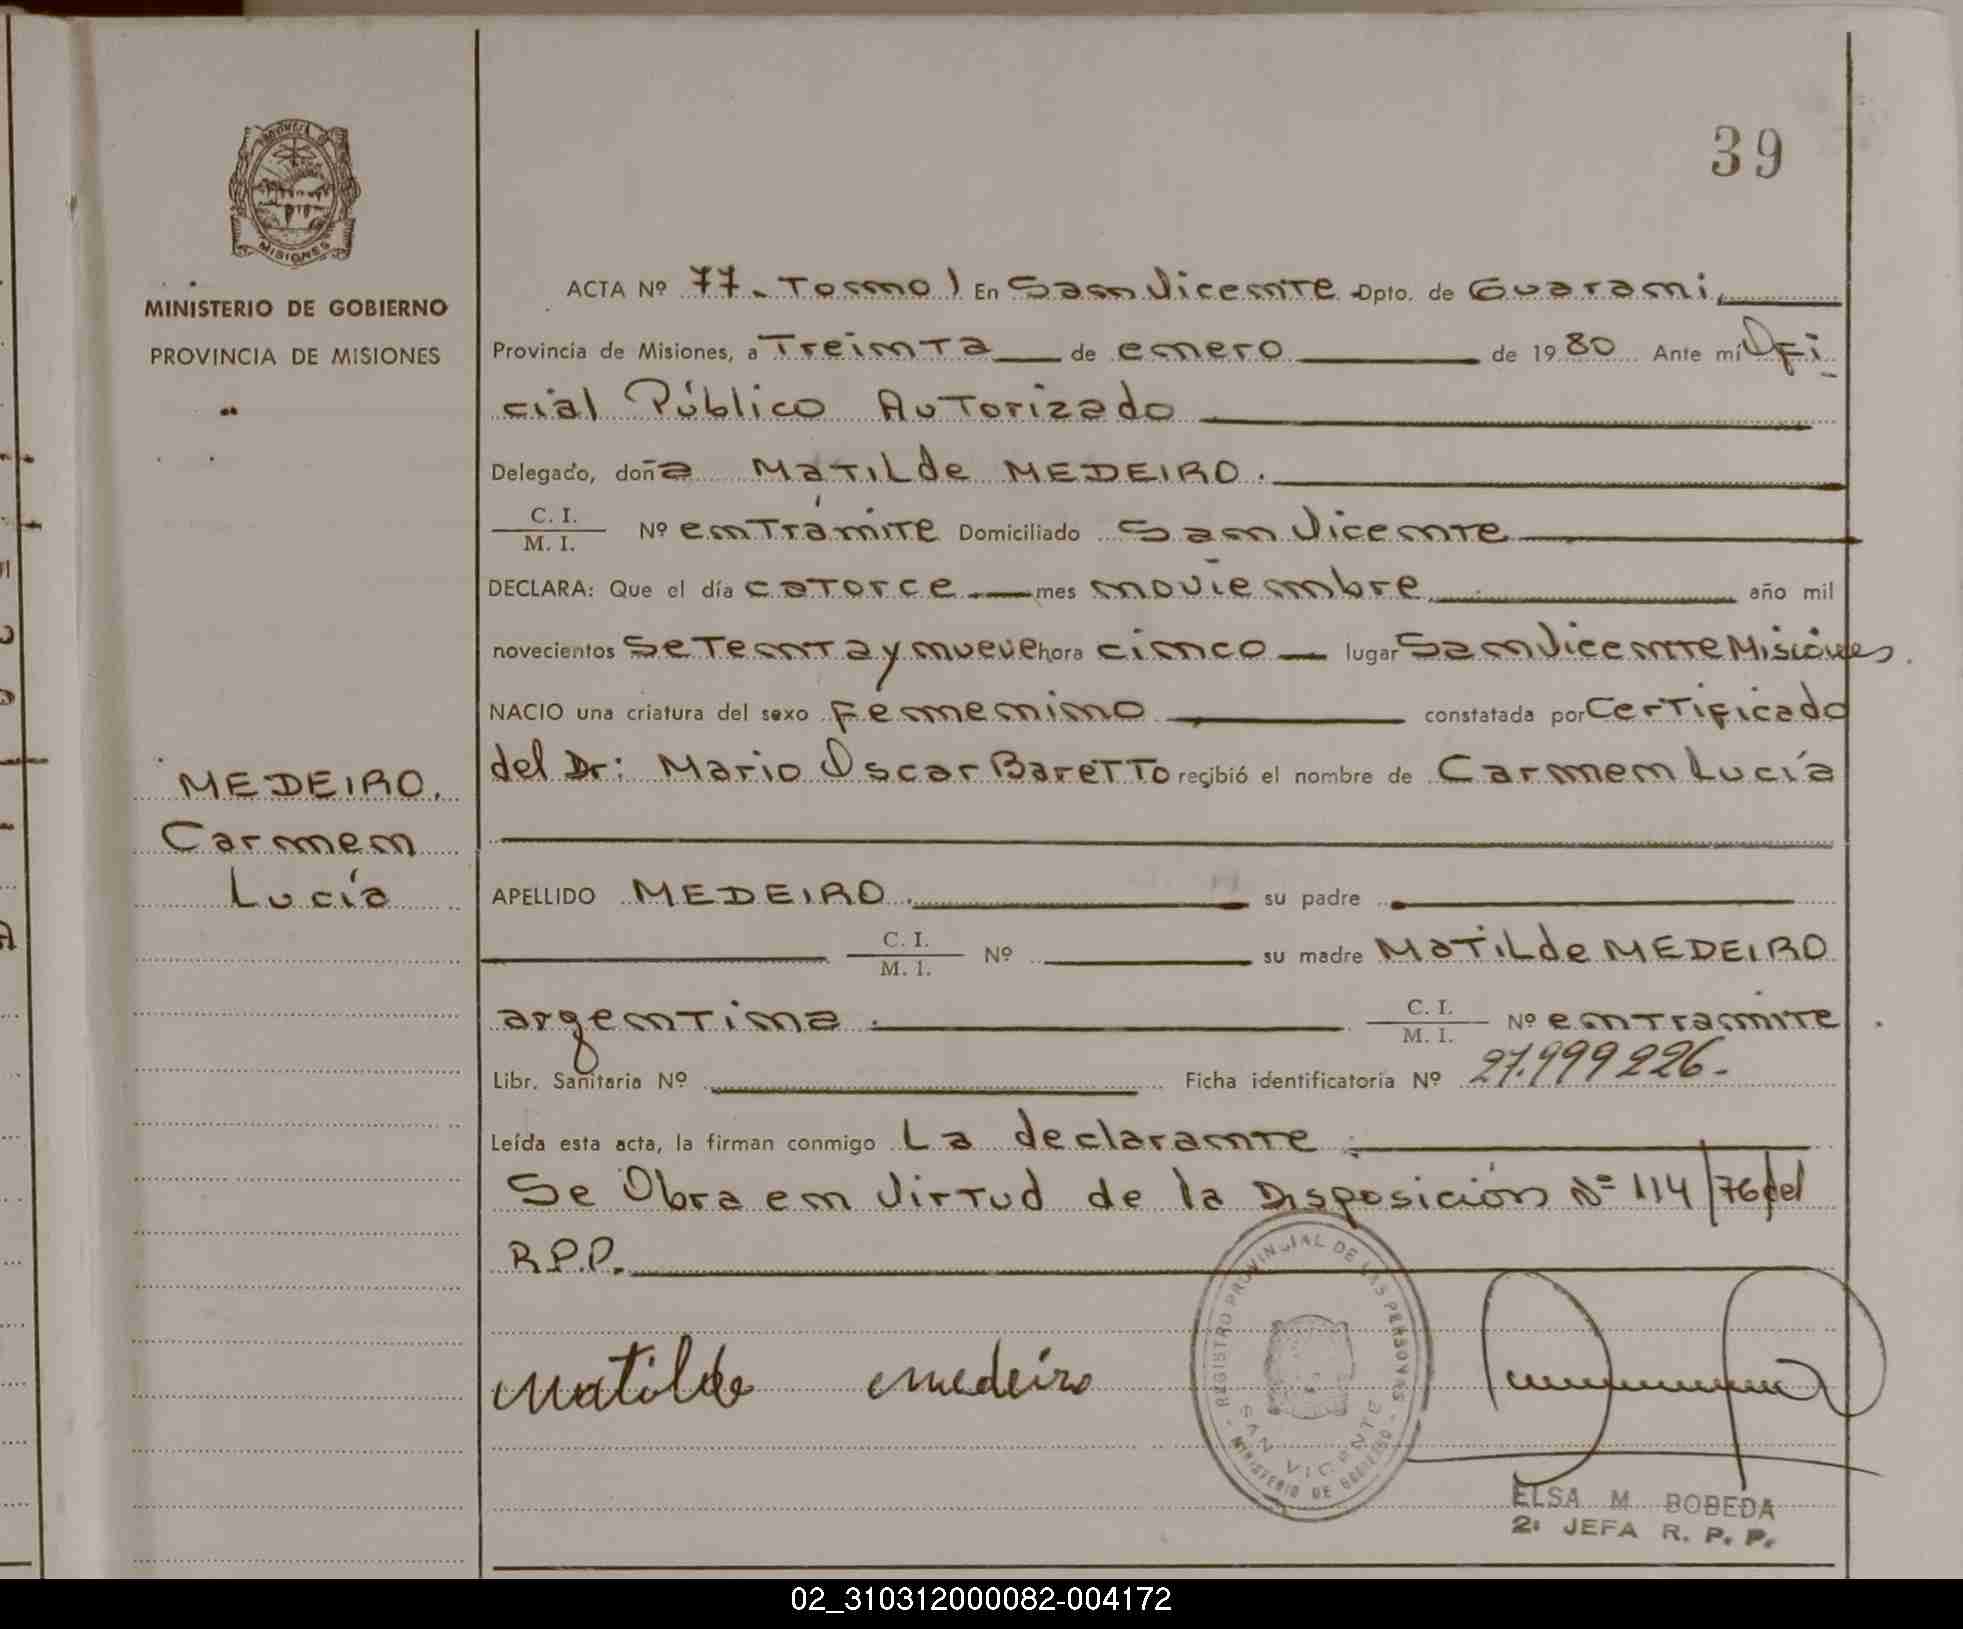 39
MINISTERIO DE GOBIERNO
PROVINCIA DE MISIONES
MISIONES
MEDEIRO.
Carmen
Lucía
ACTA Nº 77. Tomo I En San Vicente Dpto. de Guaraní,
Provincia de Misiones, a Treinta de enero de 1980 Ante mí Ofi
cial Público Autorizado
Delegado, doña Matilde MEDEIRO.
C. I.
M. I. Nº en Trámite Domiciliado San Vicente
DECLARA: Que el día catorce mes noviembre año mil
novecientos setenta y nueve hora cinco lugar San Vicente Misiones.
NACIO una criatura del sexo femenino constatada por Certificado
del Dr: Mario Oscar Baretto recibió el nombre de Carmen Lucía
APELLIDO MEDEIRO. su padre
C. I.
M. I. Nº su madre Matilde MEDEIRO
argentina. C. I.
M. I. Nº en tramite
Libr. Sanitaria Nº Ficha identificatoria Nº 27.999226.-
Leída esta acta, la firman conmigo La declarante.
Se Obra en Virtud de la Disposición Nº 114/76 del
R.P.P.
Matilde medeiro
REGISTRO PROVINCIAL DE LAS PERSONAS
SAN VICENTE
MINISTERIO DE GOBIERNO
ELSA M BOBEDA
2: JEFA R. P. P.
02_310312000082-004172